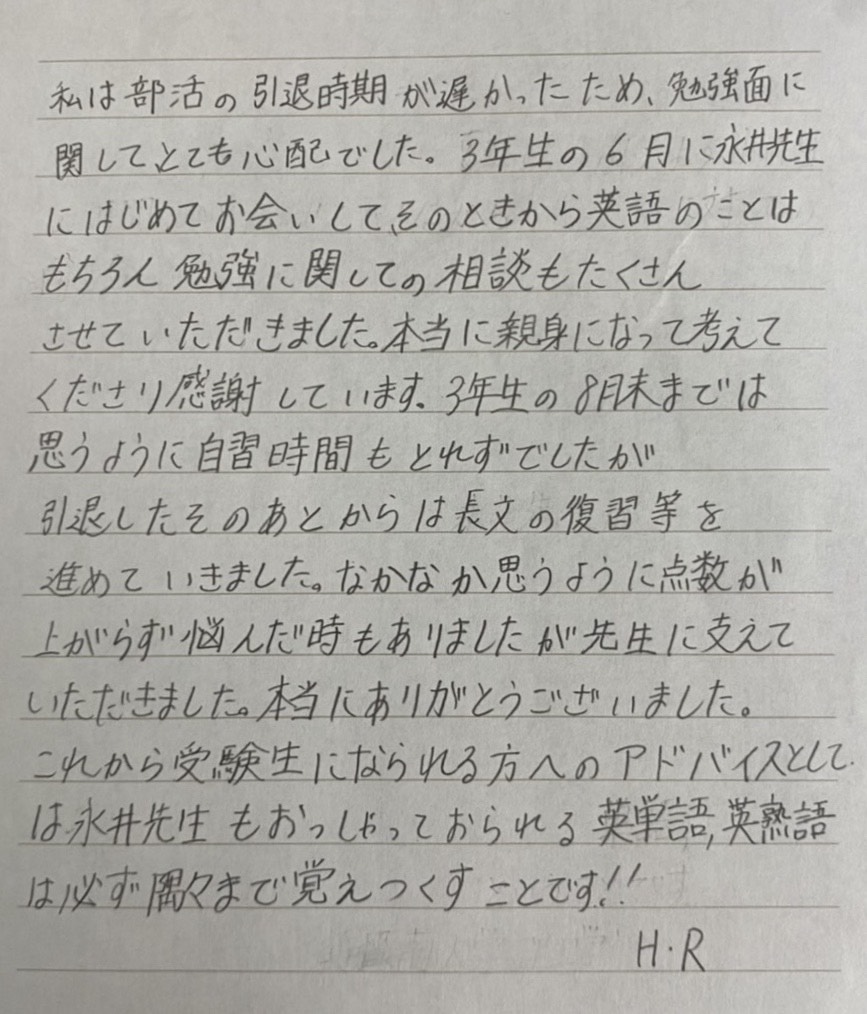 私は部活の引退時期が遅かったため、勉強面に
関してとても心配でした。3年生の6月に永井先生
にはじめてお会いして、そのときから英語のことは
もちろん勉強に関しての相談もたくさん
させていただきました。本当に親身になって考えて
くださり感謝しています。3年生の8月末までは
思うように自習時間もとれずでしたが
引退したそのあとからは長文の復習等を
進めていきました。なかなか思うように点数が
上がらず悩んだ時もありましたが先生に支えて
いただきました。本当にありがとうございました。
これから受験生になられる方へのアドバイスとして
は永井先生もおっしゃっておられる英単語,英熟語
は必ず隅々まで覚えつくすことです!!
H・R